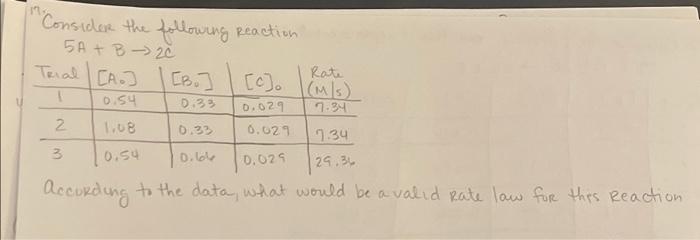 17.
Consider the following reaction
5A + B → 2C
Trial [A₀] [B₀] [C]₀ Rate (M/s)
1 0.54 0.33 0.029 7.34
2 1.08 0.33 0.029 7.34
3 0.54 0.66 0.029 29.36
according to the data, what would be a valid rate law for this reaction